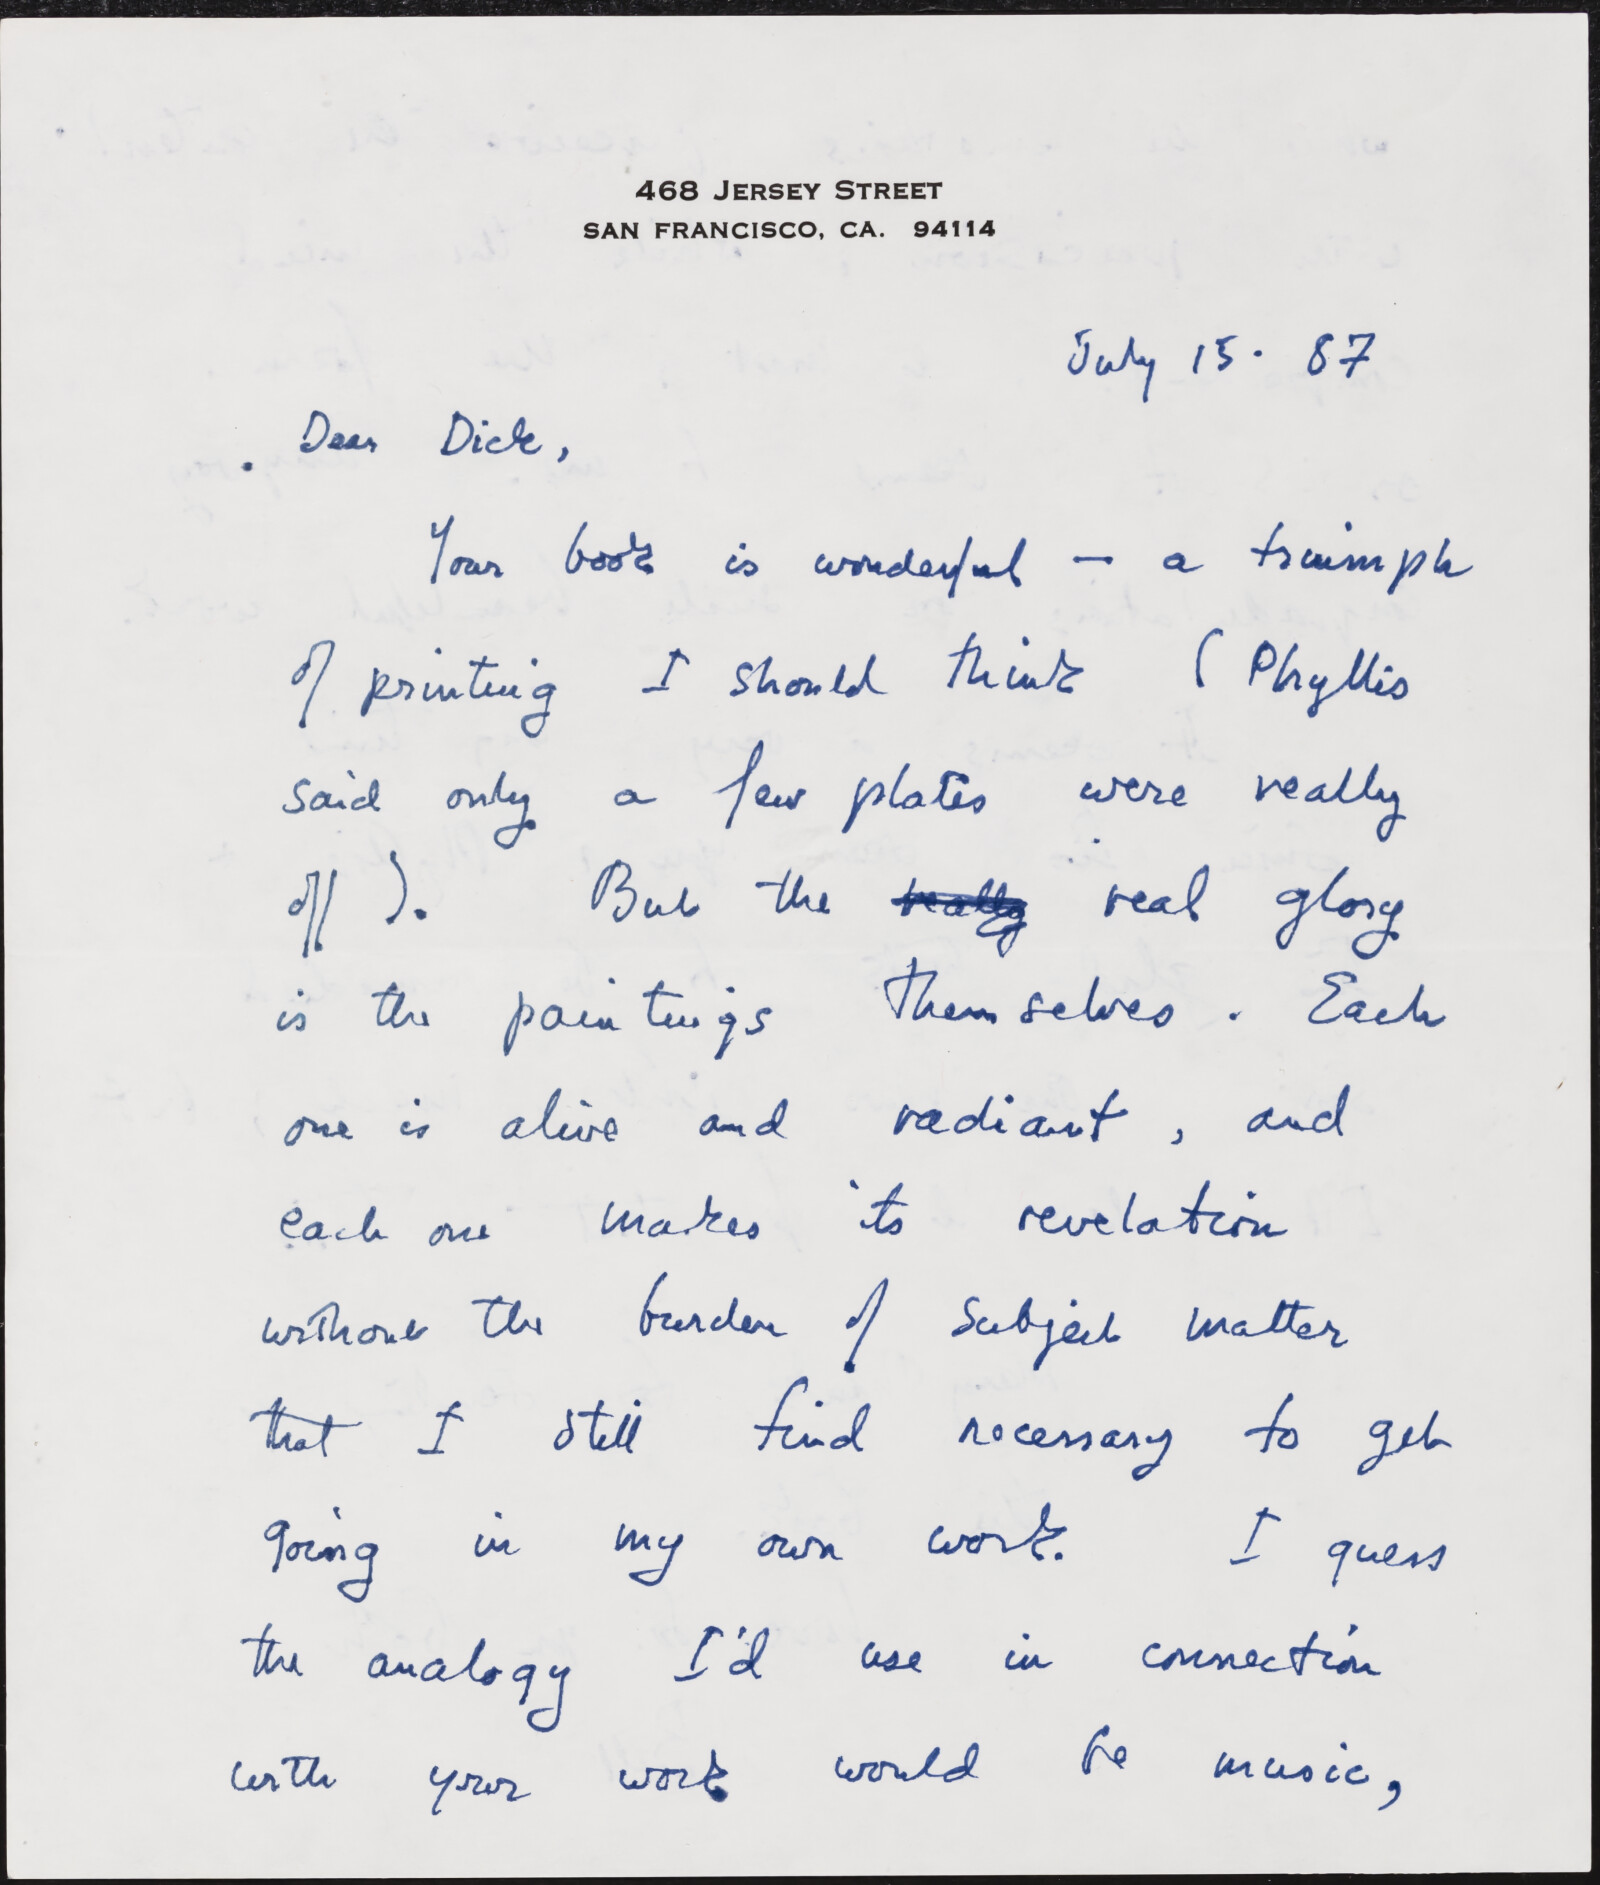 468 JERSEY STREET
SAN FRANCISCO, CA. 94114
July 15. 87
Dear Dick,
Your book is wonderful – a triumph
of printing I should think (Phyllis
said only a few plates were really
off). But the really real glory
is the paintings themselves. Each
one is alive and radiant, and
each one makes its revelation
without the burden of subject matter
that I still find necessary to get
going in my own work. I guess
the analogy I'd use in connection
with your work would be music,